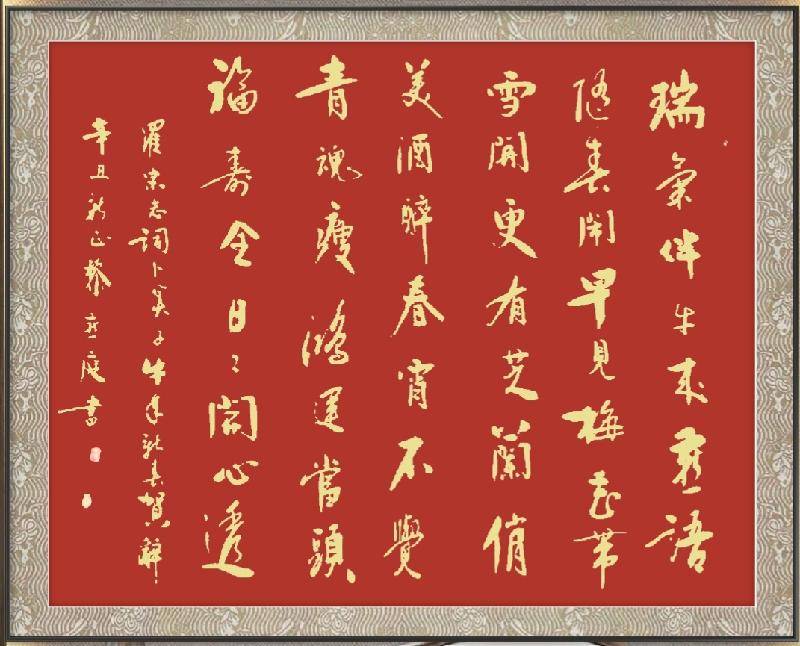 瑞氣伴牛來燕語
隨春閙早見梅花帶
雪開更有芝蘭俏
美酒醉春宵不覺
青魂瘦鴻運當頭
福壽全日々開心透
羅宗志詞卜算子牛年新春賀辭
辛丑新正黎燕庭書